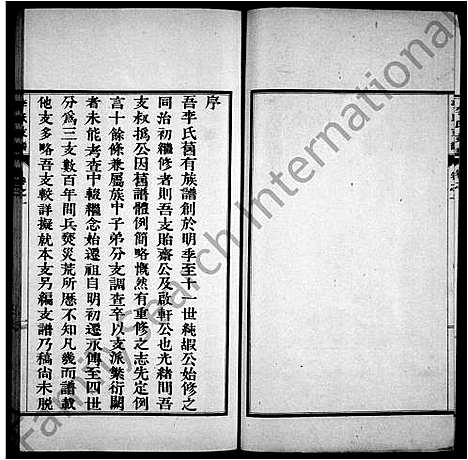 序
吾李氏舊有族譜創於明季至十一世純嘏公始修之
同治初繼修者則吾支貽齋公及啟軒公也光緒間吾
支叔撝公因舊譜體例簡略慨然有重修之志先定例
言十餘條兼屬族中子弟分支調查卒以支派繁衍闕
者未能考查中輟繼念始遷祖自明初遷永傳至四世
分爲三支數百年間兵燹災荒所歷不知凡幾而譜載
他支多略吾支較詳擬就本支另編支譜乃稿尚未脱
FamilySearch International